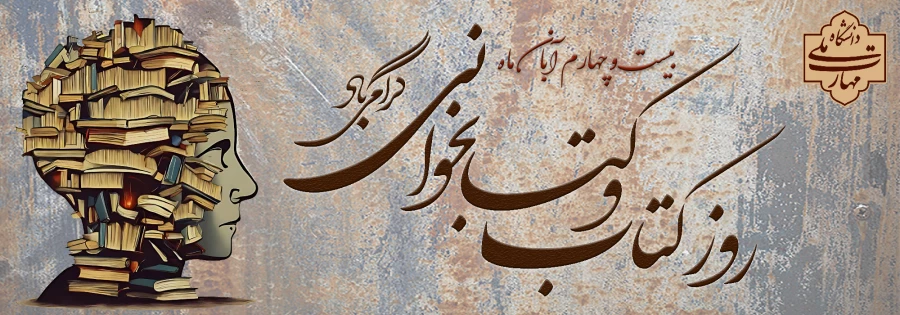 دانشگاه
ملی
مهارت
بیست و چهارم آبان ماه
روز کتاب و کتابخوانی
گرامی باد